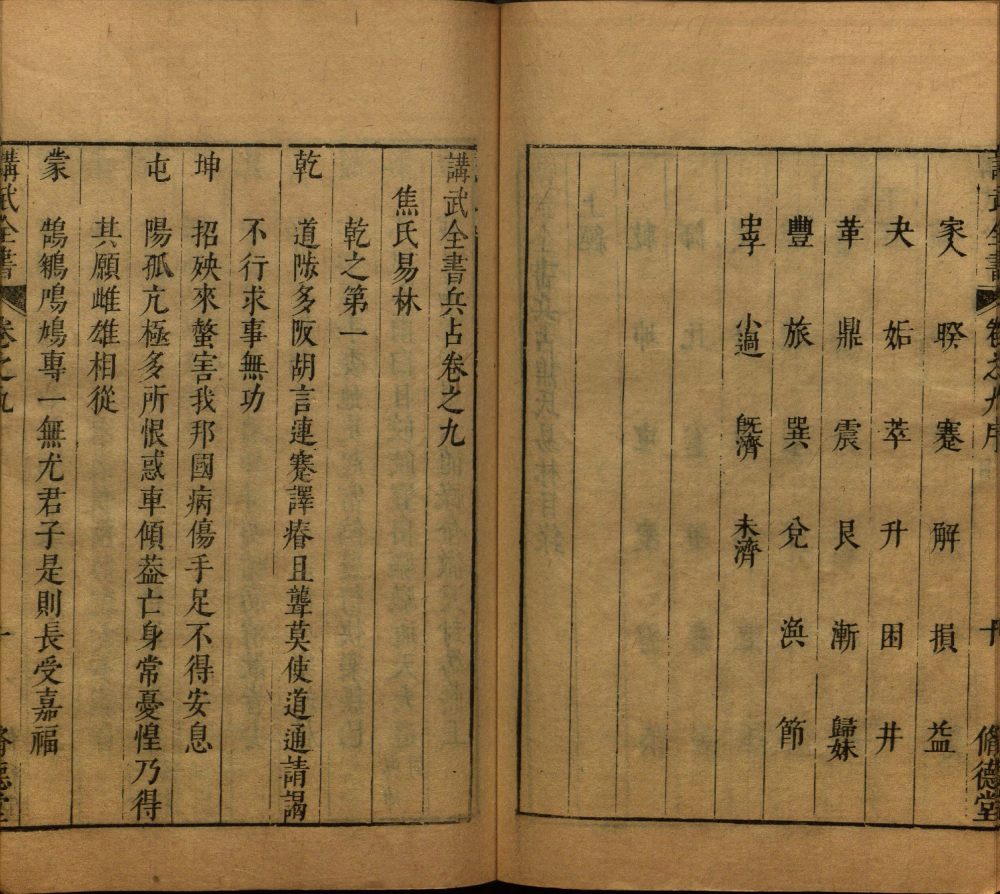 家人　睽　蹇　解　損　益
夬　姤　萃　升　困　井
革　鼎　震　艮　漸　歸妹
豐　旅　巽　兌　渙　節
中孚　小過　既濟　未濟
脩德堂
講武全書兵占卷之九
焦氏易林
乾之第一
乾　道陟多阪胡言連蹇譯瘖且聾莫使道通請謁
不行求事無功
坤　招殃來螫害我邦國病傷手足不得安息
屯　陽孤亢極多所恨惑車傾葢亡身常憂惶乃得
其願雌雄相從
蒙　鵠鵴鳲鳩專一無尤君子是則長受嘉福
講武全書　卷之九　一　脩德堂